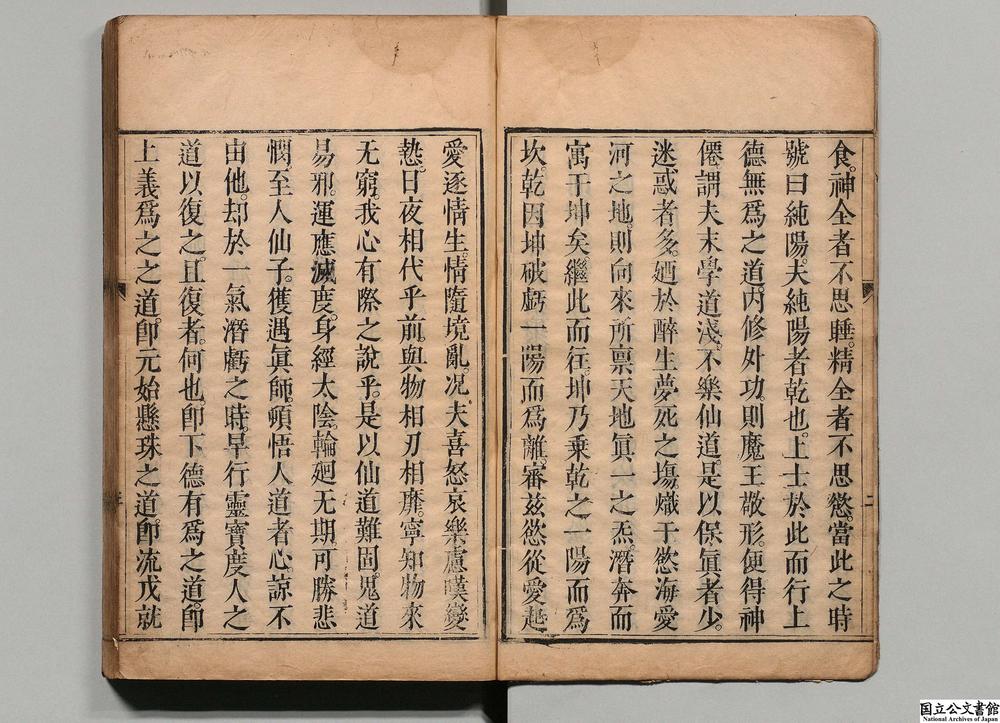 食。神全者不思睡。精全者不思慾當此之時
號曰純陽。夫純陽者乾也。上士於此而行上
德無爲之道。內修外功。則魔王敬形。便得神
僊。謂夫末學道淺。不樂仙道。是以保眞者少。
迷惑者多。迺於醉生夢死之塲熾于慾海愛
河之地。則向來所禀天地眞一之炁。潛奔而
寓于坤矣。繼此而往。坤乃乘乾之一陽而爲
坎。乾因坤破虧一陽而爲離。審兹慾從愛起
愛逐情生。情隨境亂。况夫喜怒哀樂慮嘆變
慹。日夜相代乎前。與物相刃相靡。寧知物來
无窮我心有際之說乎。是以仙道難固。鬼道
易邪。運應滅度。身經太陰。輪廻无期。可勝悲
憫。至人仙子。獲遇眞師。頓悟人道者心諒不
由他。却於一氣潛虧之時。早行靈寶度人之
道以復之。且復者。何也。卽下德有爲之道。卽
上義爲之之道卽元始懸珠之道卽流戊就
二
国立公文書館
National Archives of Japan